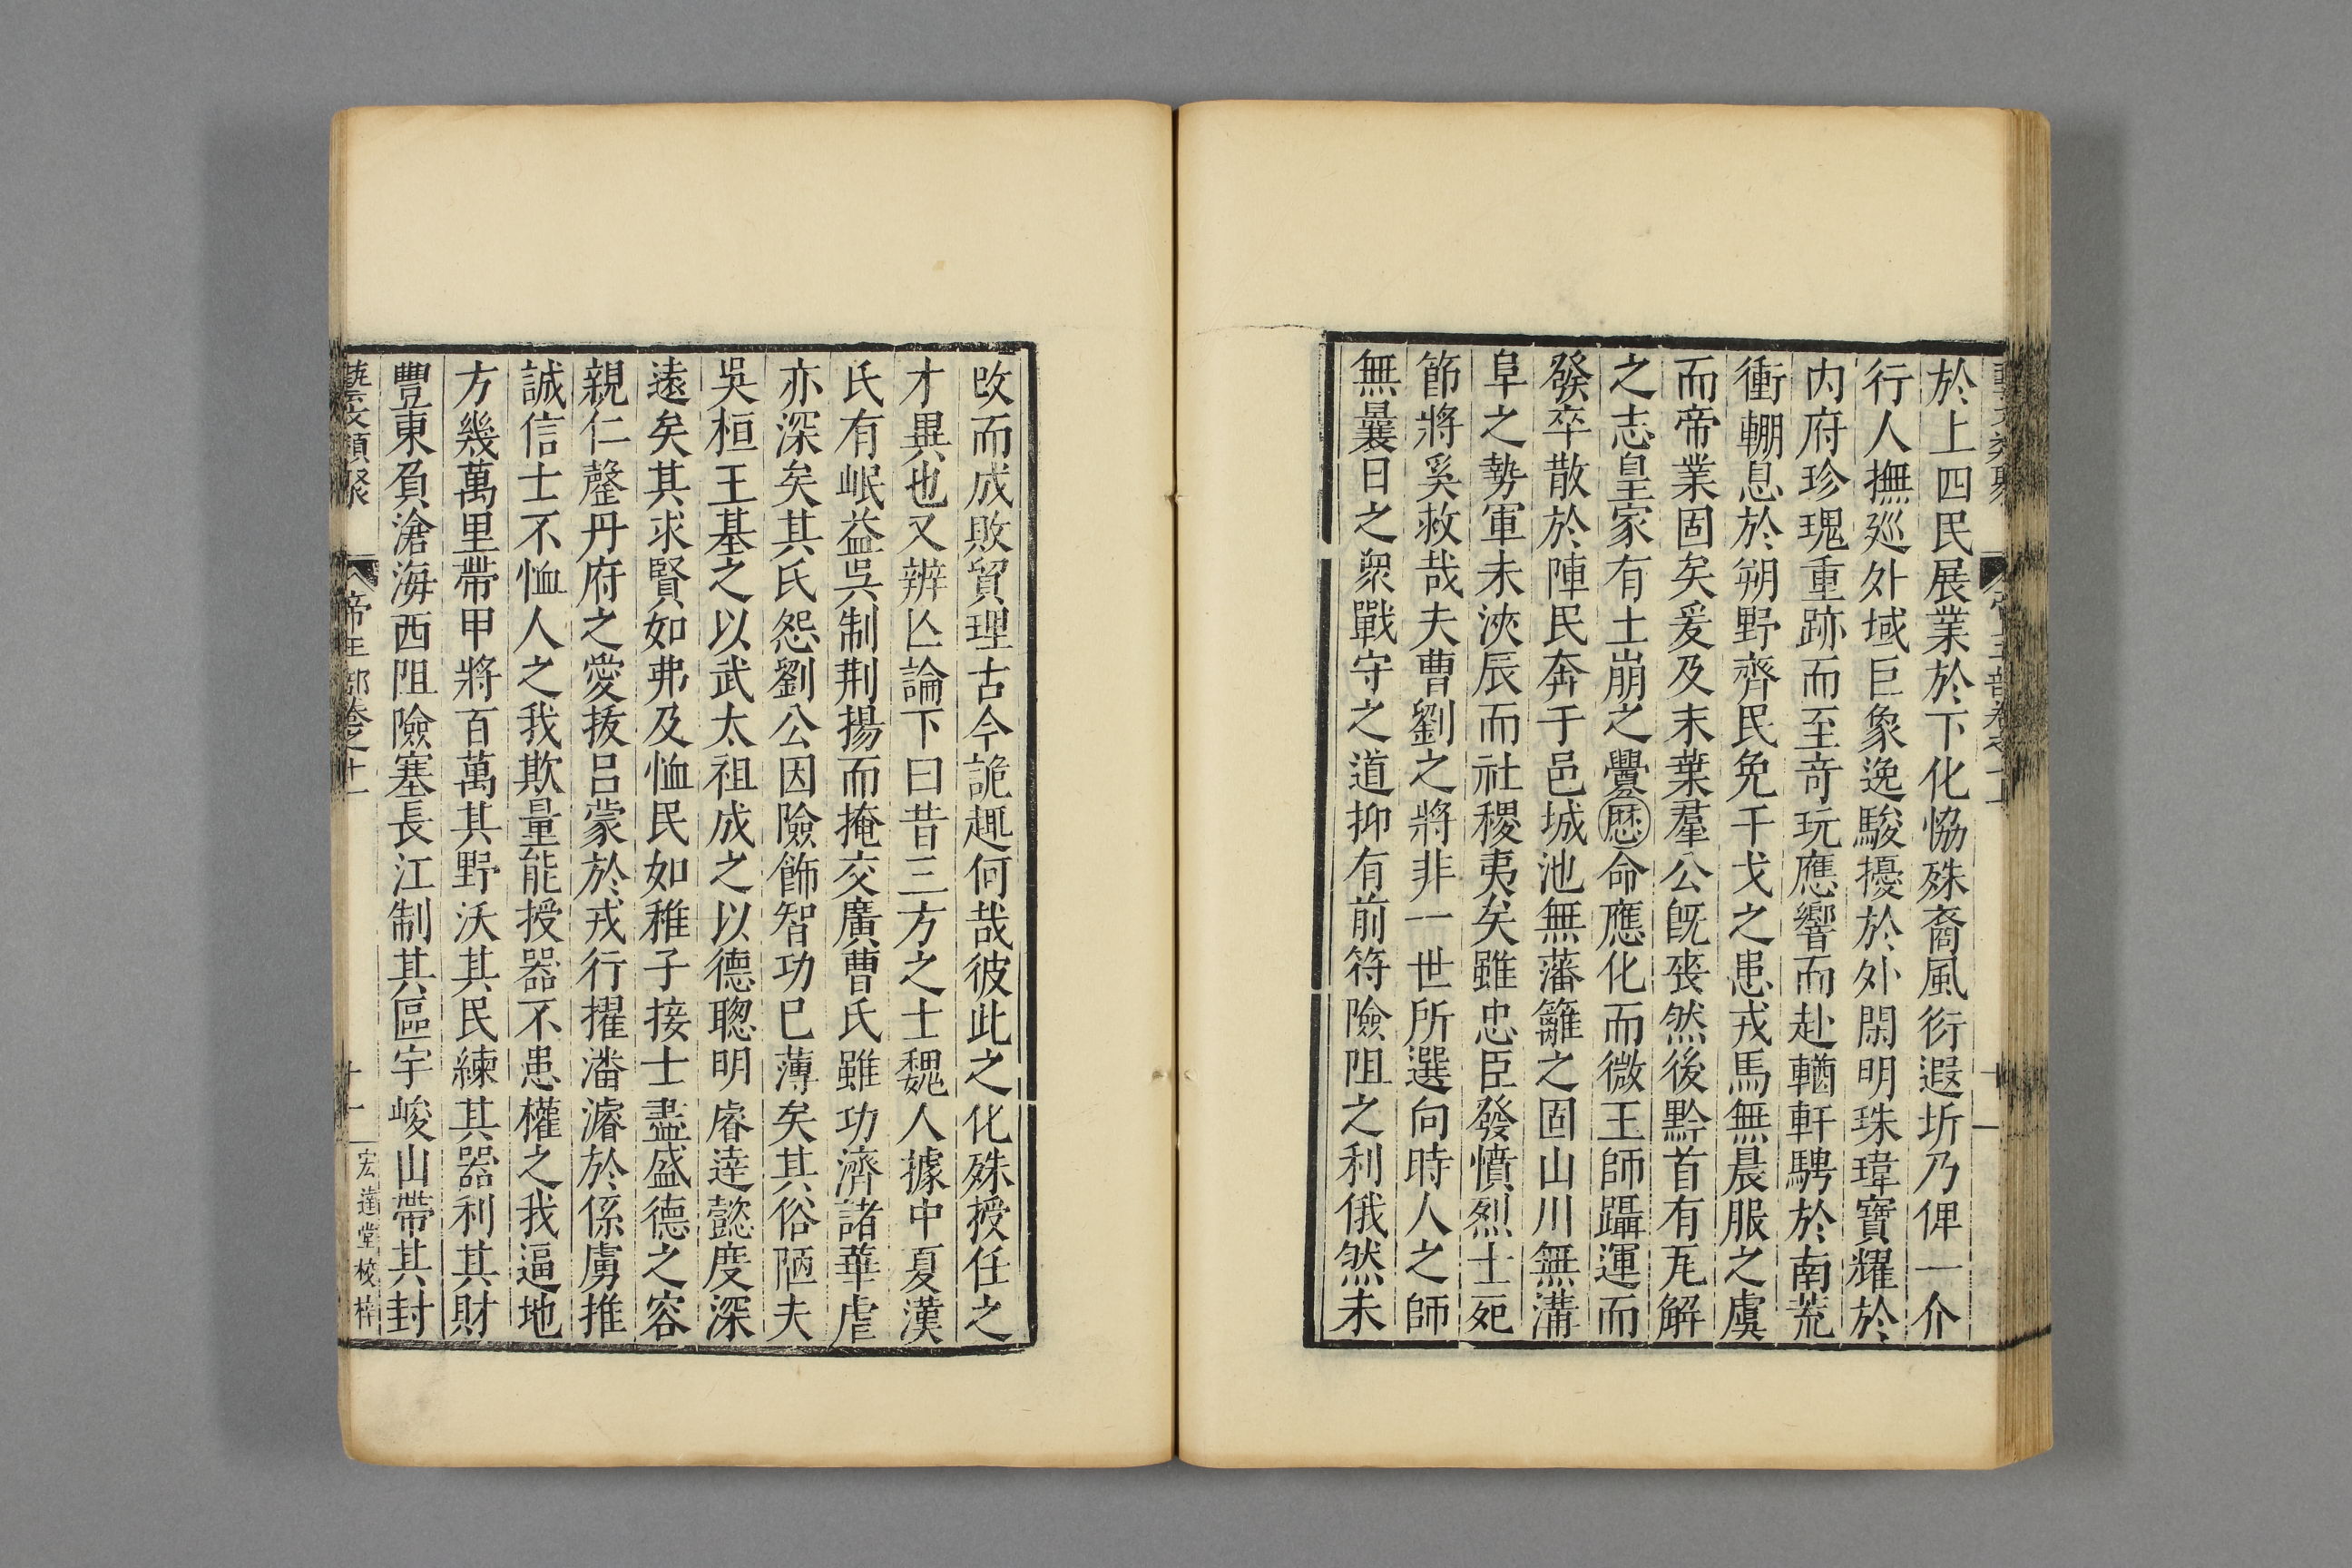 於上四民展業於下化恊殊裔風衍遐圻乃俾一介
行人撫廵外域巨象逸駿擾於外閑明珠瑋寶耀於
内府珍瑰重跡而至竒玩應響而赴輶軒騁於南荒
衝輣息於朔野齊民免干戈之患戎馬無晨服之虞
而帝業固矣爰及末葉羣公旣喪然後黔首有瓦解
之志皇家有土崩之釁歴命應化而微王師躡運而
發卒散於陣民奔于邑城池無藩籬之固山川無溝
阜之勢軍未浹辰而社稷夷矣雖忠臣發憤烈士死
節將奚救哉夫曹劉之將非一世所選向時人之師
無曩日之衆戰守之道抑有前符險阻之利俄然未
攺而成敗貿理古今詭趣何哉彼此之化殊授任之
才異也又辨亾論下曰昔三方之士魏人據中夏漢
氏有岷益吳制荆揚而掩交廣曹氏雖功濟諸華虐
亦深矣其氏怨劉公因險飾智功已薄矣其俗陋夫
吳桓王基之以武太祖成之以德聦明睿逹懿度深
遠矣其求賢如弗及恤民如稚子接士盡盛德之容
親仁罄丹府之愛拔吕蒙於戎行擢潘濬於係虜推
誠信士不恤人之我欺量能授器不患權之我逼地
方幾萬里帶甲將百萬其野沃其民練其器利其財
豐東負滄海西阻險塞長江制其區宇峻山帶其封
藝文類聚 帝王部卷之十一 十一 宏達堂校梓